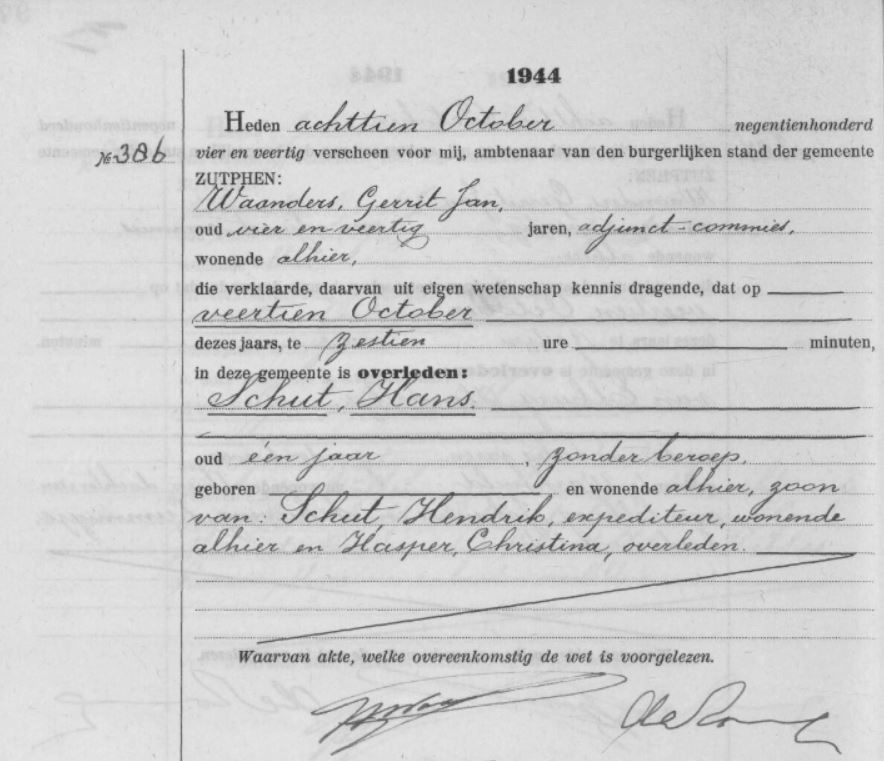 1944
Heden achttien October negentienhonderd
№ 386 vier en veertig verscheen voor mij, ambtenaar van den burgerlijken stand der gemeente
ZUTPHEN:
Waanders, Gerrit Jan,
oud vier en veertig jaren, adjunct-commies,
wonende alhier,
die verklaarde, daarvan uit eigen wetenschap kennis dragende, dat op
veertien October
dezes jaars, te zestien ure minuten,
in deze gemeente is overleden:
Schut, Hans.
oud één jaar, zonder beroep,
geboren en wonende alhier, zoon
van: Schut, Hendrik, expediteur, wonende
alhier en Hasper, Christina, overleden.
Waarvan akte, welke overeenkomstig de wet is voorgelezen.